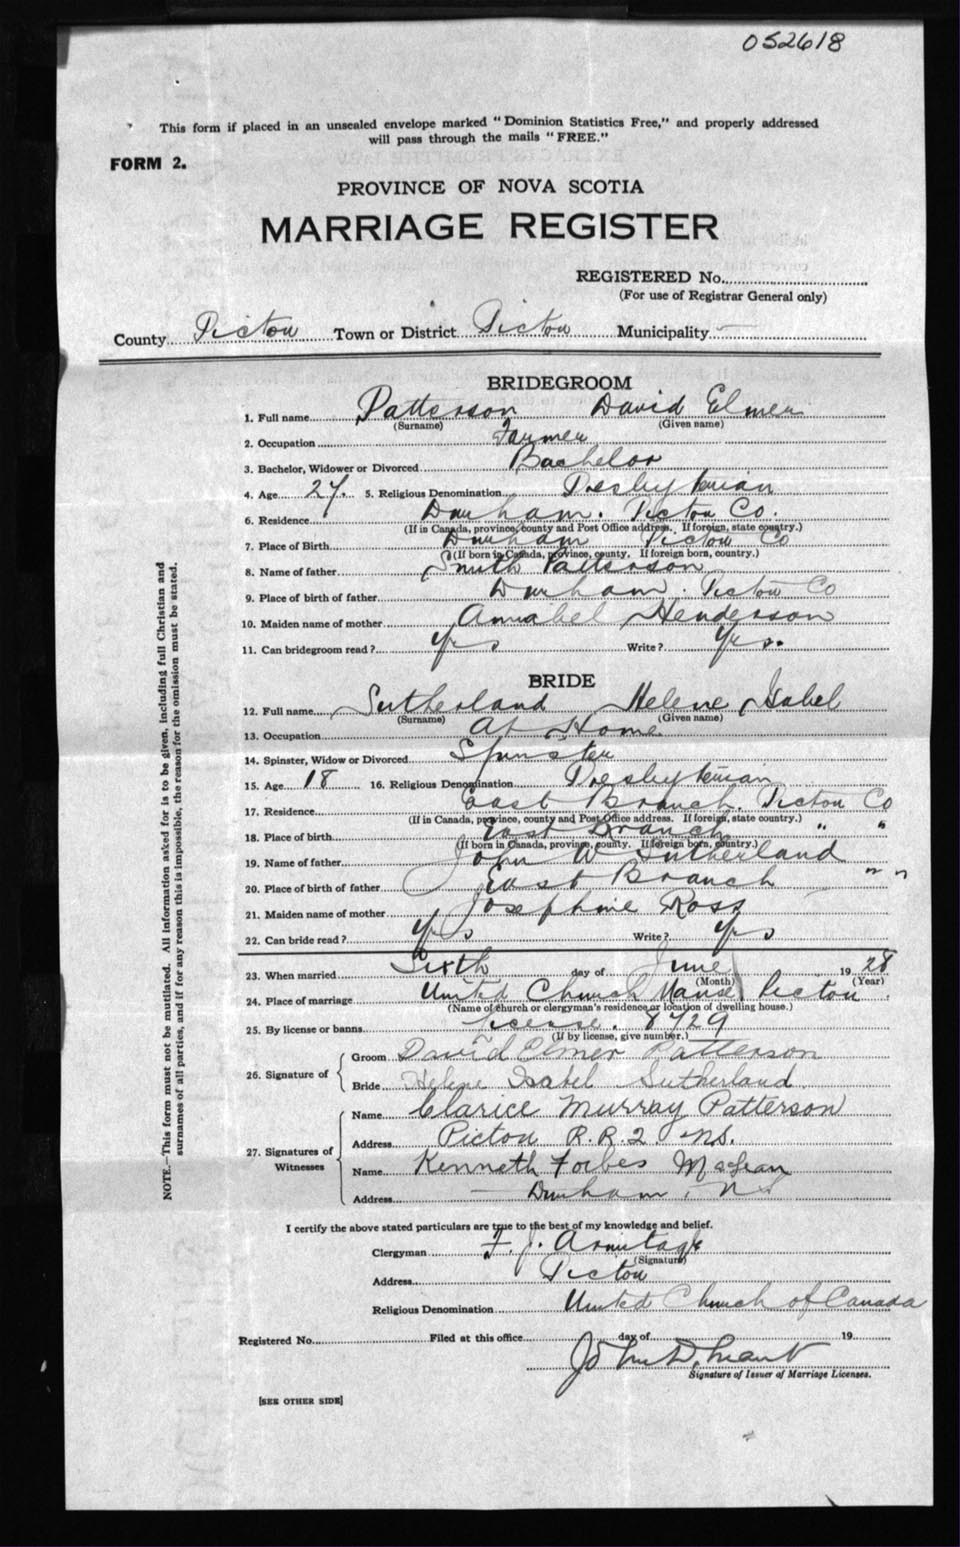 052618
This form if placed in an unsealed envelope marked "Dominion Statistics Free," and properly addressed
will pass through the mails "FREE."
FORM 2.
PROVINCE OF NOVA SCOTIA
MARRIAGE REGISTER
REGISTERED No.
(For use of Registrar General only)
County Pictou Town or District Pictou Municipality —
BRIDEGROOM
1. Full name Patterson David Elmer
(Surname) (Given name)
2. Occupation Farmer
3. Bachelor, Widower or Divorced Bachelor
4. Age 27. 5. Religious Denomination Presbyterian
6. Residence Durham. Pictou Co.
(If in Canada, province, county and Post Office address. If foreign, state country.)
7. Place of Birth Durham Pictou Co
(If born in Canada, province, county. If foreign born, country.)
8. Name of father Smith Patterson
9. Place of birth of father Durham. Pictou Co
10. Maiden name of mother Annabel Henderson
11. Can bridegroom read? Yes Write? Yes.
BRIDE
12. Full name Sutherland Helene Isabel
(Surname) (Given name)
13. Occupation At Home
14. Spinster, Widow or Divorced Spinster
15. Age 18 16. Religious Denomination Presbyterian
17. Residence East Branch. Pictou Co
(If in Canada, province, county and Post Office address. If foreign, state country.)
18. Place of birth East Branch " "
(If born in Canada, province, county. If foreign born, country.)
19. Name of father John W Sutherland
20. Place of birth of father East Branch " "
21. Maiden name of mother Josephine Ross
22. Can bride read? Yes Write? Yes
23. When married Sixth day of June 1928
(Month) (Year)
24. Place of marriage United Church Manse Pictou
(Name of church or clergyman's residence or location of dwelling house.)
25. By license or banns license. 8729
(If by license, give number.)
26. Signature of
Groom David Elmer Patterson
Bride Helene Isabel Sutherland
27. Signatures of Witnesses
Name Clarice Murray Patterson
Address Pictou R.R.2 NS.
Name Kenneth Forbes McLean
Address Durham, NS
I certify the above stated particulars are true to the best of my knowledge and belief.
Clergyman F. J. Armitage
(Signature)
Address Pictou
Religious Denomination United Church of Canada
Registered No. Filed at this office day of 19
John D.
Signature of Issuer of Marriage Licenses.
[SEE OTHER SIDE]
NOTE.—This form must not be mutilated. All information asked for is to be given, including full Christian and
surnames of all parties, and if for any reason this is impossible, the reason for the omission must be stated.